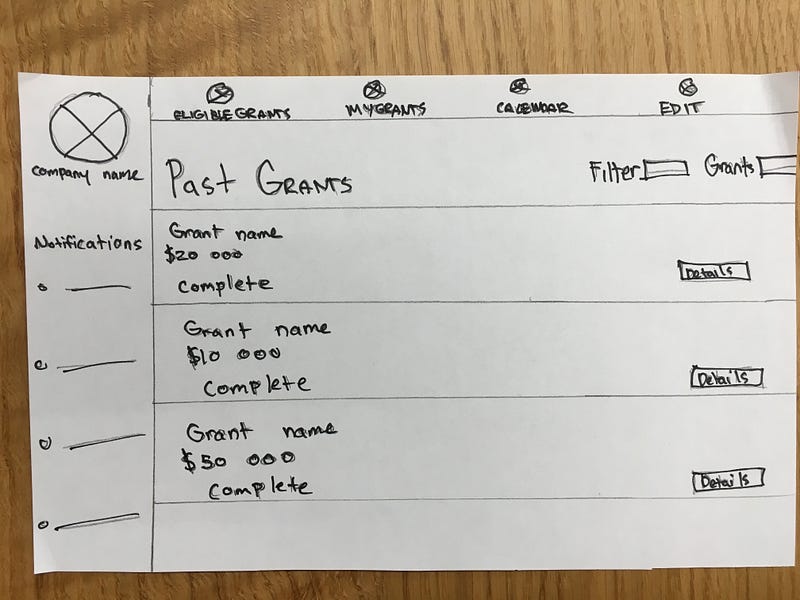 ELIGIBLE GRANTS
MY GRANTS
CALENDAR
EDIT
company name
Past GRANTS
Filter
Grants
Notifications
Grant name
$20 000
complete
Details
Grant name
$10 000
complete
Details
Grant name
$50 000
complete
Details